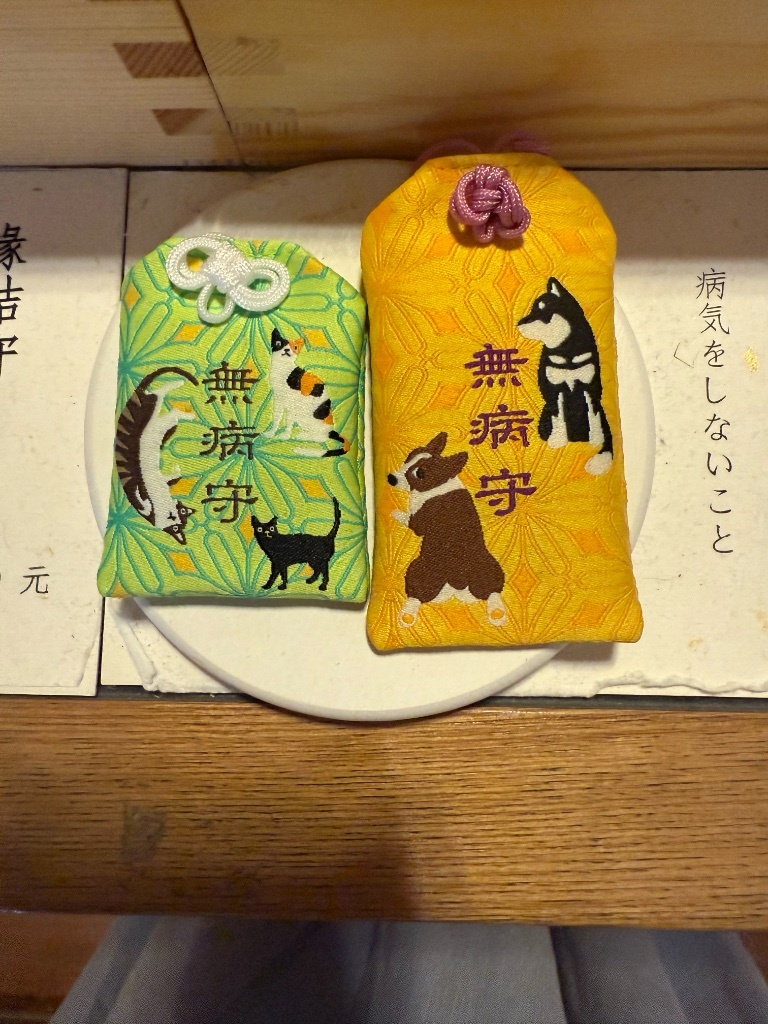 無病守
無病守
病気をしないこと
縁結守
元